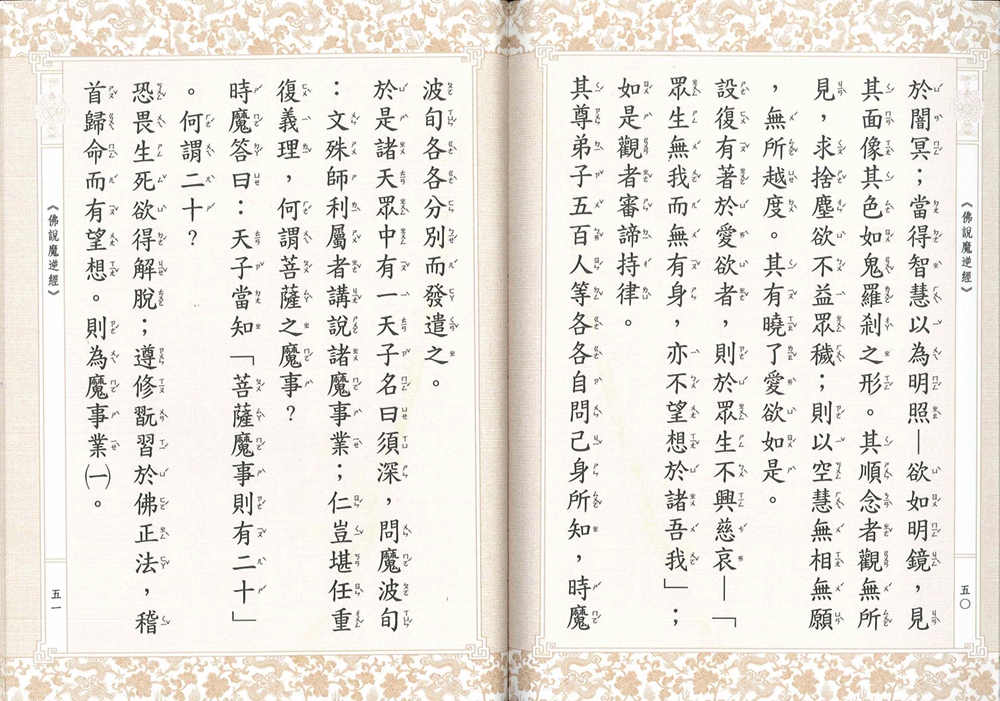 《佛說魔逆經》
五〇
於闇冥；當得智慧以為明照—欲如明鏡，見
其面像其色如鬼羅剎之形。其順念者觀無所
見，求捨塵欲不益眾穢；則以空慧無相無願
，無所越度。其有曉了愛欲如是。
設復有著於愛欲者，則於眾生不興慈哀—「
眾生無我而無有身，亦不望想於諸吾我」；
如是觀者審諦持律。
其尊弟子五百人等各各自問己身所知，時魔
波旬各各分別而發遣之。
於是諸天眾中有一天子名曰須深，問魔波旬
：文殊師利屬者講說諸魔事業；仁豈堪任重
復義理，何謂菩薩之魔事？
時魔答曰：天子當知「菩薩魔事則有二十」
。何謂二十？
恐畏生死欲得解脫；遵修翫習於佛正法，稽
首歸命而有望想。則為魔事業㈠。
《佛說魔逆經》
五一